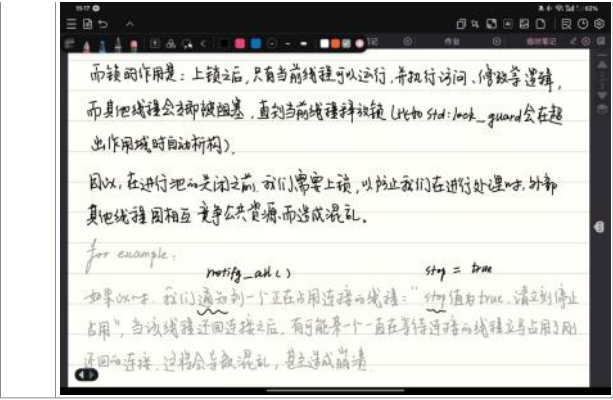 15:17
62%
笔记
作业
临时笔记
而锁的作用是：上锁之后，只有当前线程可以运行，并执行访问、修改等逻辑，
而其他线程会立即被阻塞，直到当前线程释放锁（比如 std::lock_guard会在超
出作用域时自动析构）。
因此，在进行池的关闭之前，我们需要上锁，以防止我们在进行处理时，外部
其他线程因相互竞争公共资源而造成混乱。
for example:
notify_all() stop = true
如果此时，我们通知到一个正在占用连接的线程："stop值为true，请立刻停止
占用"，当该线程还回连接之后，有可能某一个一直在等待连接的线程立马占用了刚
还回的连接，这将会导致混乱，甚至造成崩溃